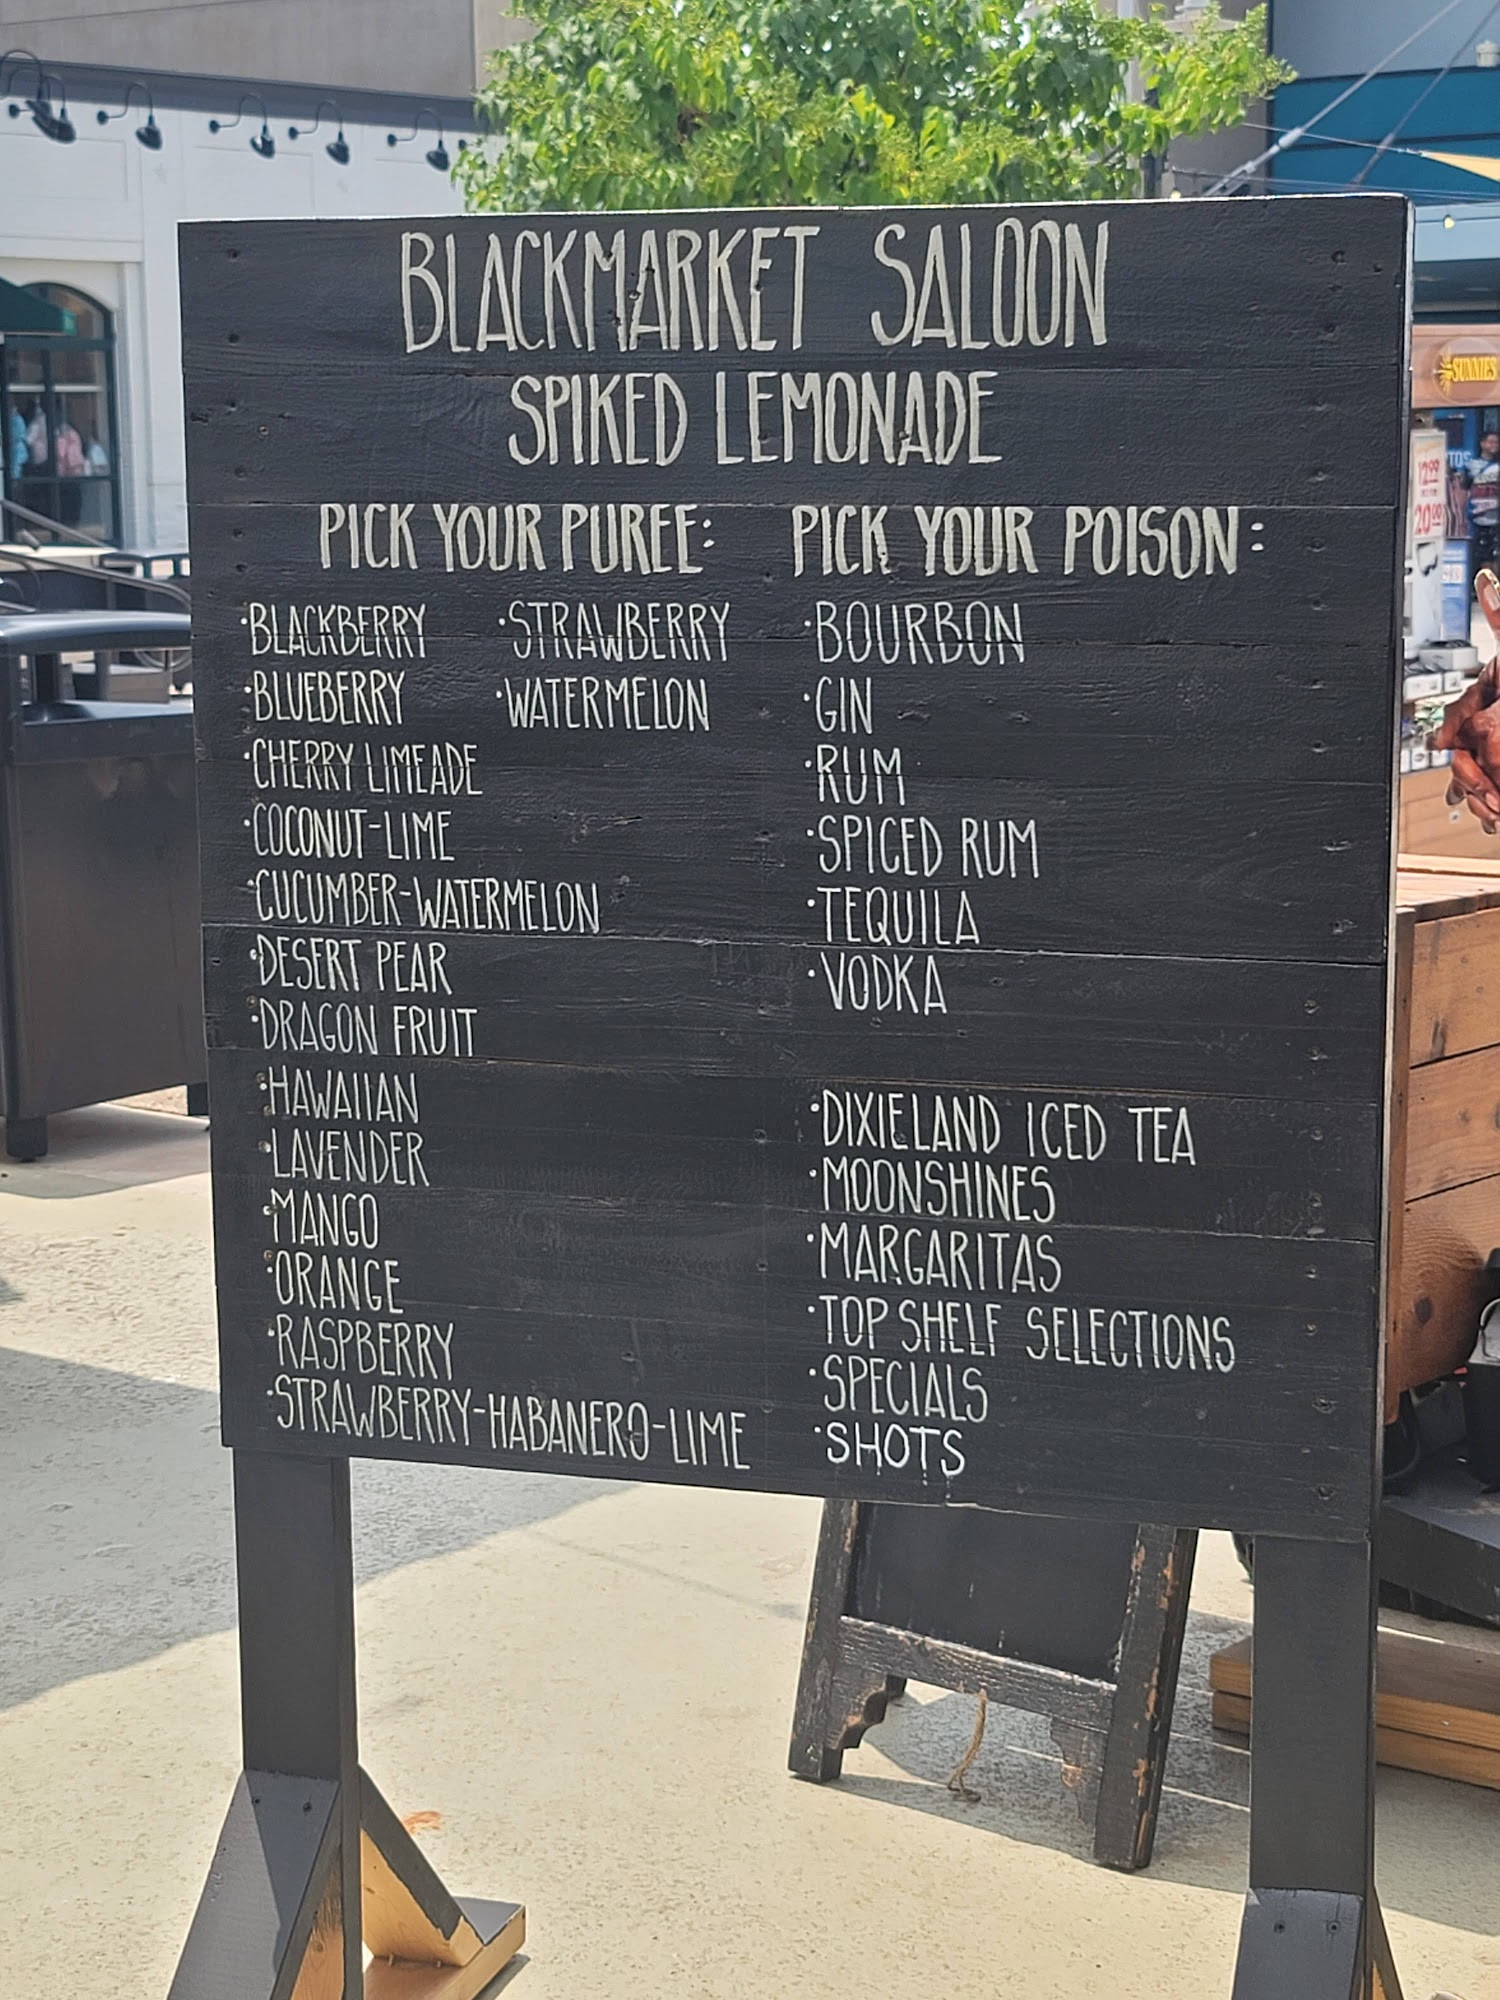 BLACKMARKET SALOON
SPIKED LEMONADE
PICK YOUR PUREE:
·BLACKBERRY
·BLUEBERRY
·CHERRY LIMEADE
·COCONUT-LIME
·CUCUMBER-WATERMELON
·DESERT PEAR
·DRAGON FRUIT
·HAWAIIAN
·LAVENDER
·MANGO
·ORANGE
·RASPBERRY
·STRAWBERRY-HABANERO-LIME
·STRAWBERRY
·WATERMELON
PICK YOUR POISON:
·BOURBON
·GIN
·RUM
·SPICED RUM
·TEQUILA
·VODKA
·DIXIELAND ICED TEA
·MOONSHINES
·MARGARITAS
·TOP SHELF SELECTIONS
·SPECIALS
·SHOTS
SUNNIES
12.99
20.00